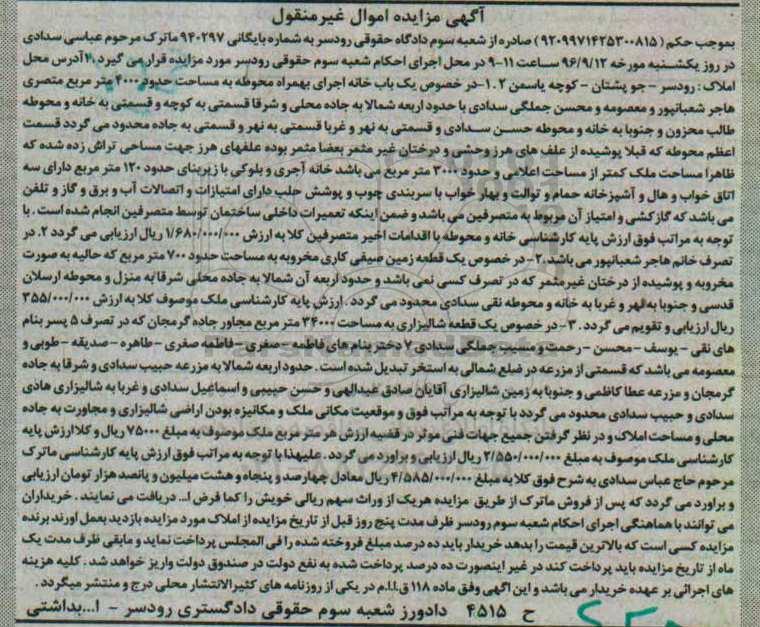 آگهی مزایده اموال غیرمنقول
بموجب حکم (۹۲۰۹۹۷۱۴۲۵۳۰۰۸۱۵) صادره از شعبه سوم دادگاه حقوقی رودسر به شماره بایگانی ۹۴۰۲۹۷ ماترک مرحوم عباسی سدادی
در روز یکشنبه مورخه ۹۶/۹/۱۲ ساعت ۱۱-۹ در محل اجرای احکام شعبه سوم حقوقی رودسر مورد مزایده قرار می گیرد. آدرس محل
املاک : رودسر - جو پشتان - کوچه یاسمن ۲. ۱-در خصوص یک باب خانه اجرای بهمراه محوطه به مساحت حدود ۴۰۰۰ متر مربع متصری
هاجر شعبانپور و معصومه و محسن جملگی سدادی با حدود اربعه شمالا به جاده محلی و شرقا قسمتی به کوچه و قسمتی به خانه و محوطه
طالب محزون و جنوبا به خانه و محوطه حسن سدادی و قسمتی به نهر و غربا قسمتی به نهر و قسمتی به جاده محدود می گردد قسمت
اعظم محوطه که قبلا پوشیده از علف های هرز وحشی و درختان غیر مثمر بعضا مثمر بوده علفهای هرز جهت مساحی تراش زده شده که
ظاهرا مساحت ملک کمتر از مساحت اعلامی و حدود ۳۰۰۰ متر مربع می باشد خانه آجری و بلوکی با زیربنای حدود ۱۲۰ متر مربع دارای سه
اتاق خواب و هال و آشپزخانه حمام و توالت و بهار خواب با سربندی چوب و پوشش حلب دارای امتیازات و اتصالات آب و برق و گاز و تلفن
می باشد که گازکشی و امتیاز آن مربوط به متصرفین می باشد و ضمن اینکه تعمیرات داخلی ساختمان توسط متصرفین انجام شده است . با
توجه به مراتب فوق ارزش پایه کارشناسی خانه و محوطه با اقدامات اخیر متصرفین کلا به ارزش ۱/۶۸۰/۰۰۰/۰۰۰ ریال ارزیابی می گردد ۲. در
تصرف خانم هاجر شعبانپور می باشد.۲- در خصوص یک قطعه زمین صیفی کاری مخروبه به مساحت حدود ۷۰۰ متر مربع که حالیه به صورت
مخروبه و پوشیده از درختان غیرمثمر که در تصرف کسی نمی باشد و حدود اربعه آن شمالا به جاده محلی شرقا به منزل و محوطه ارسلان
قدسی و جنوبا به نهر و غربا به خانه و محوطه نقی سدادی محدود می گردد . ارزش پایه کارشناسی ملک موصوف کلا به ارزش ۳۵۵/۰۰۰/۰۰۰
ریال ارزیابی و تقویم می گردد . ۳ - در خصوص یک قطعه شالیزاری به مساحت ۳۴۰۰۰ متر مربع مجاور جاده گرمجان که در تصرف ۵ پسر بنام
های نقی - یوسف - محسن - رحمت و مسیب جملگی سدادی ۷ دختر بنام های فاطمه - صغری - فاطمه صغری - طاهره - صدیقه - طوبی و
معصومه می باشد که قسمتی از مزرعه در ضلع شمالی به استخر تبدیل شده است . حدود اربعه شمالا به مزرعه حبیب سدادی و شرقا به جاده
گرمجان و مزرعه عطا کاظمی و جنوبا به زمین شالیزاری آقایان صادق عبدالهی و حسن حبیبی و اسماعیل سدادی و غربا به شالیزاری هادی
سدادی و حبیب سدادی محدود می گردد با توجه به مراتب فوق و موقعیت مکانی ملک و مکانیزه بودن اراضی شالیزاری و مجاورت به جاده
محلی و مساحت املاک و در نظر گرفتن جمیع جهات فنی موثر در قضیه ارزش هر متر مربع ملک موصوف به مبلغ ۷۵۰۰۰ ریال و کلا ارزش پایه
کارشناسی ملک موصوف به مبلغ ۲/۵۵۰/۰۰۰/۰۰۰ ریال ارزیابی و براورد می گردد . علیهذا با توجه به مراتب فوق ارزش پایه کارشناسی ماترک
مرحوم حاج عباس سدادی به شرح فوق کلا به مبلغ ۴/۵۸۵/۰۰۰/۰۰۰ ریال معادل چهارصد و پنجاه و هشت میلیون و پانصد هزار تومان ارزیابی
و براورد می گردد که پس از فروش ماترک از طریق مزایده هریک از وراث سهم ریالی خویش را کما فرض ا... دریافت می نمایند . خریداران
می توانند با هماهنگی اجرای احکام شعبه سوم رودسر ظرف مدت پنج روز قبل از تاریخ مزایده از املاک مورد مزایده بازدید بعمل اورند برنده
مزایده کسی است که بالاترین قیمت را بدهد خریدار باید ده درصد مبلغ فروخته شده را فی المجلس پرداخت نماید و مابقی ظرف مدت یک
ماه از تاریخ مزایده باید پرداخت کند در غیر اینصورت ده درصد پرداخت شده به نفع دولت در صندوق دولت واریز خواهد شد . کلیه هزینه
های اجرائی بر عهده خریدار می باشد و این اگهی وفق ماده ۱۱۸ ق.ا.ا.م در یکی از روزنامه های کثیرالانتشار محلی درج و منتشر میگردد .
ح ۴۵۱۵ دادورز شعبه سوم حقوقی دادگستری رودسر - ا...بداشتی